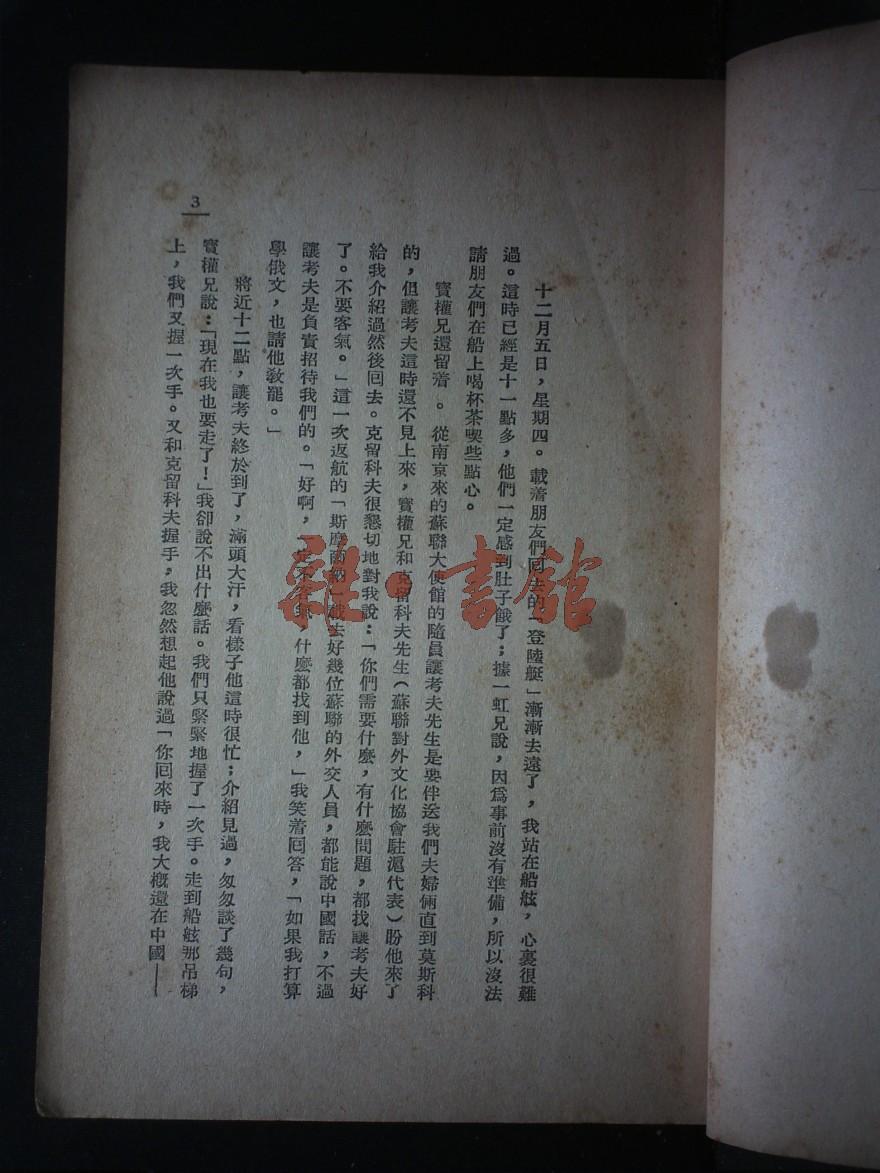 十二月五日，星期四。載着朋友們回去的「登陸艇」漸漸去遠了，我站在船舷，心裏很難
過。這時已經是十一點多，他們一定感到肚子餓了；據一虹兄說，因爲事前沒有準備，所以沒法
請朋友們在船上喝杯茶喫些點心。
寶權兄還留着。從南京來的蘇聯大使館的隨員讓考夫先生是要伴送我們夫婦倆直到莫斯科
的，但讓考夫這時還不見上來，寶權兄和克留科夫先生（蘇聯對外文化協會駐滬代表）盼他來了
給我介紹過然後回去。克留科夫很懇切地對我說：「你們需要什麼，有什麼問題，都找讓考夫好
了。不要客氣。」這一次返航的「斯摩爾納」載去好幾位蘇聯的外交人員，都能說中國話，不過
讓考夫是負責招待我們的。「好啊，一定不客氣，什麼都找到他，」我笑着回答，「如果我打算
學俄文，也請他教罷。」
將近十二點，讓考夫終於到了，滿頭大汗，看樣子他這時很忙；介紹見過，匆匆談了幾句，
寶權兄說：「現在我也要走了！」我卻說不出什麼話。我們只緊緊地握了一次手。走到船舷那吊梯
上，我們又握一次手。又和克留科夫握手；我忽然想起他說過「你回來時，我大概還在中國——
3
雜·書館